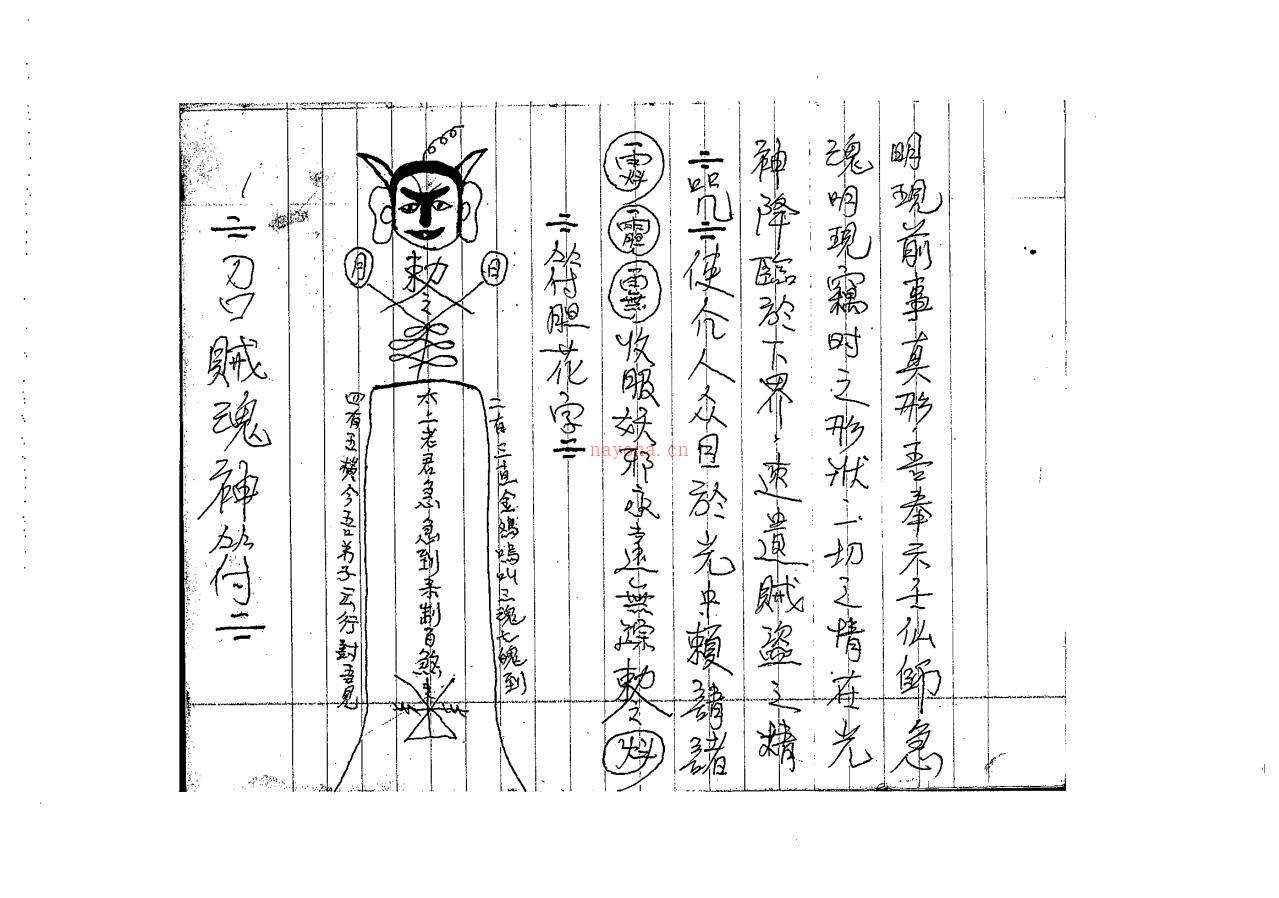 明現前事真形吾奉示玉仙師急
魂明現竊时之形狀一切之情在光
神降臨於下界速遣賊盜之精
咒使介人众目於光中賴請諸
收服妖邪永遠無踪敕之
符胆花字
日
月
敕
二有三直金鷄鳴叫三魂七魄到
老君急急到來制百煞
四有五 今吾弟子 行對吾見
刀口賊魂神符
nayona.cn